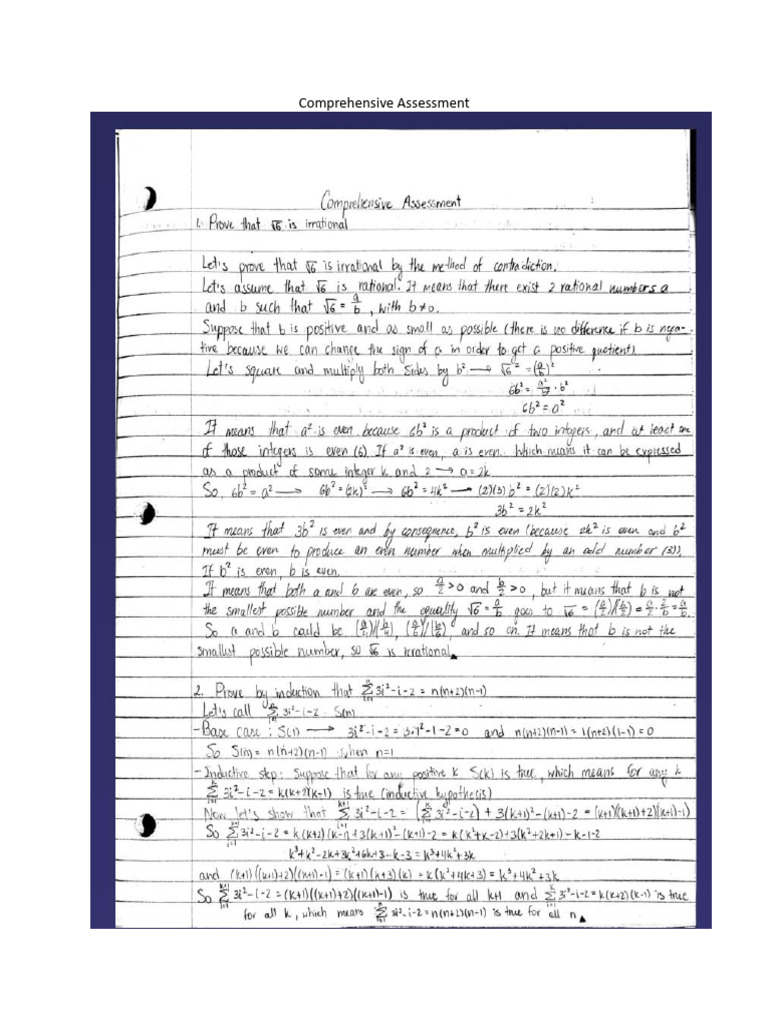 Comprehensive Assessment
Comprehensive Assessment
1. Prove that √6 is irrational
Let's prove that √6 is irrational by the method of contradiction.
Let's assume that √6 is rational. It means that there exist 2 rational numbers a
and b such that √6 = a/b, with b≠0.
Suppose that b is positive and as small as possible (there is no difference if b is nega-
tive because we can change the sign of a in order to get a positive quotient).
Let's square and multiply both sides by b² → √6² = (a/b)²
6b² = a²/b² · b²
6b² = a²
It means that a² is even because 6b² is a product of two integers, and at least one
of those integers is even (6). If a² is even, a is even. Which means it can be expressed
as a product of some integer k and 2 → a = 2k.
So, 6b² = a² → 6b² = (2k)² → 6b² = 4k² → (2)(3)b² = (2)(2)k²
3b² = 2k²
It means that 3b² is even and by consequence, b² is even (because 2k² is even and b²
must be even to produce an even number when multiplied by an odd number (3)).
If b² is even, b is even.
It means that both a and b are even, so a/2 > 0 and b/2 > 0, but it means that b is not
the smallest possible number and the equality √6 = a/b goes to √6 = (a/2)/(b/2) = a/2 · 2/b = a/b.
So a and b could be (a/4)/(b/4), (a/6)/(b/6), and so on. It means that b is not the
smallest possible number, so √6 is irrational.
2. Prove by induction that Σ 3i²-i-2 = n(n+2)(n-1)
Let's call Σ 3i²-i-2 S(n)
- Base case: S(1) → 3i²-i-2 = 3·1²-1-2 = 0 and n(n+2)(n-1) = 1(1+2)(1-1) = 0
So S(n) = n(n+2)(n-1) when n=1
- Inductive step: Suppose that for any positive k S(k) is true, which means for any k
Σ 3i²-i-2 = k(k+2)(k-1) is true (inductive hypothesis)
Now let's show that Σ 3i²-i-2 = (Σ 3i²-i-2) + 3(k+1)²-(k+1)-2 = (k+1)((k+1)+2)((k+1)-1)
So Σ 3i²-i-2 = k(k+2)(k-1)+3(k+1)²-(k+1)-2 = k(k²+k-2)+3(k²+2k+1)-k-1-2
k³+k²-2k+3k²+6k+3-k-3 = k³+4k²+3k
and (k+1)((k+1)+2)((k+1)-1) = (k+1)(k+3)(k) = k(k²+4k+3) = k³+4k²+3k
So Σ 3i²-i-2 = (k+1)((k+1)+2)((k+1)-1) is true for all k+1 and Σ 3i²-i-2 = k(k+2)(k-1) is true
for all k, which means Σ 3i²-i-2 = n(n+2)(n-1) is true for all n